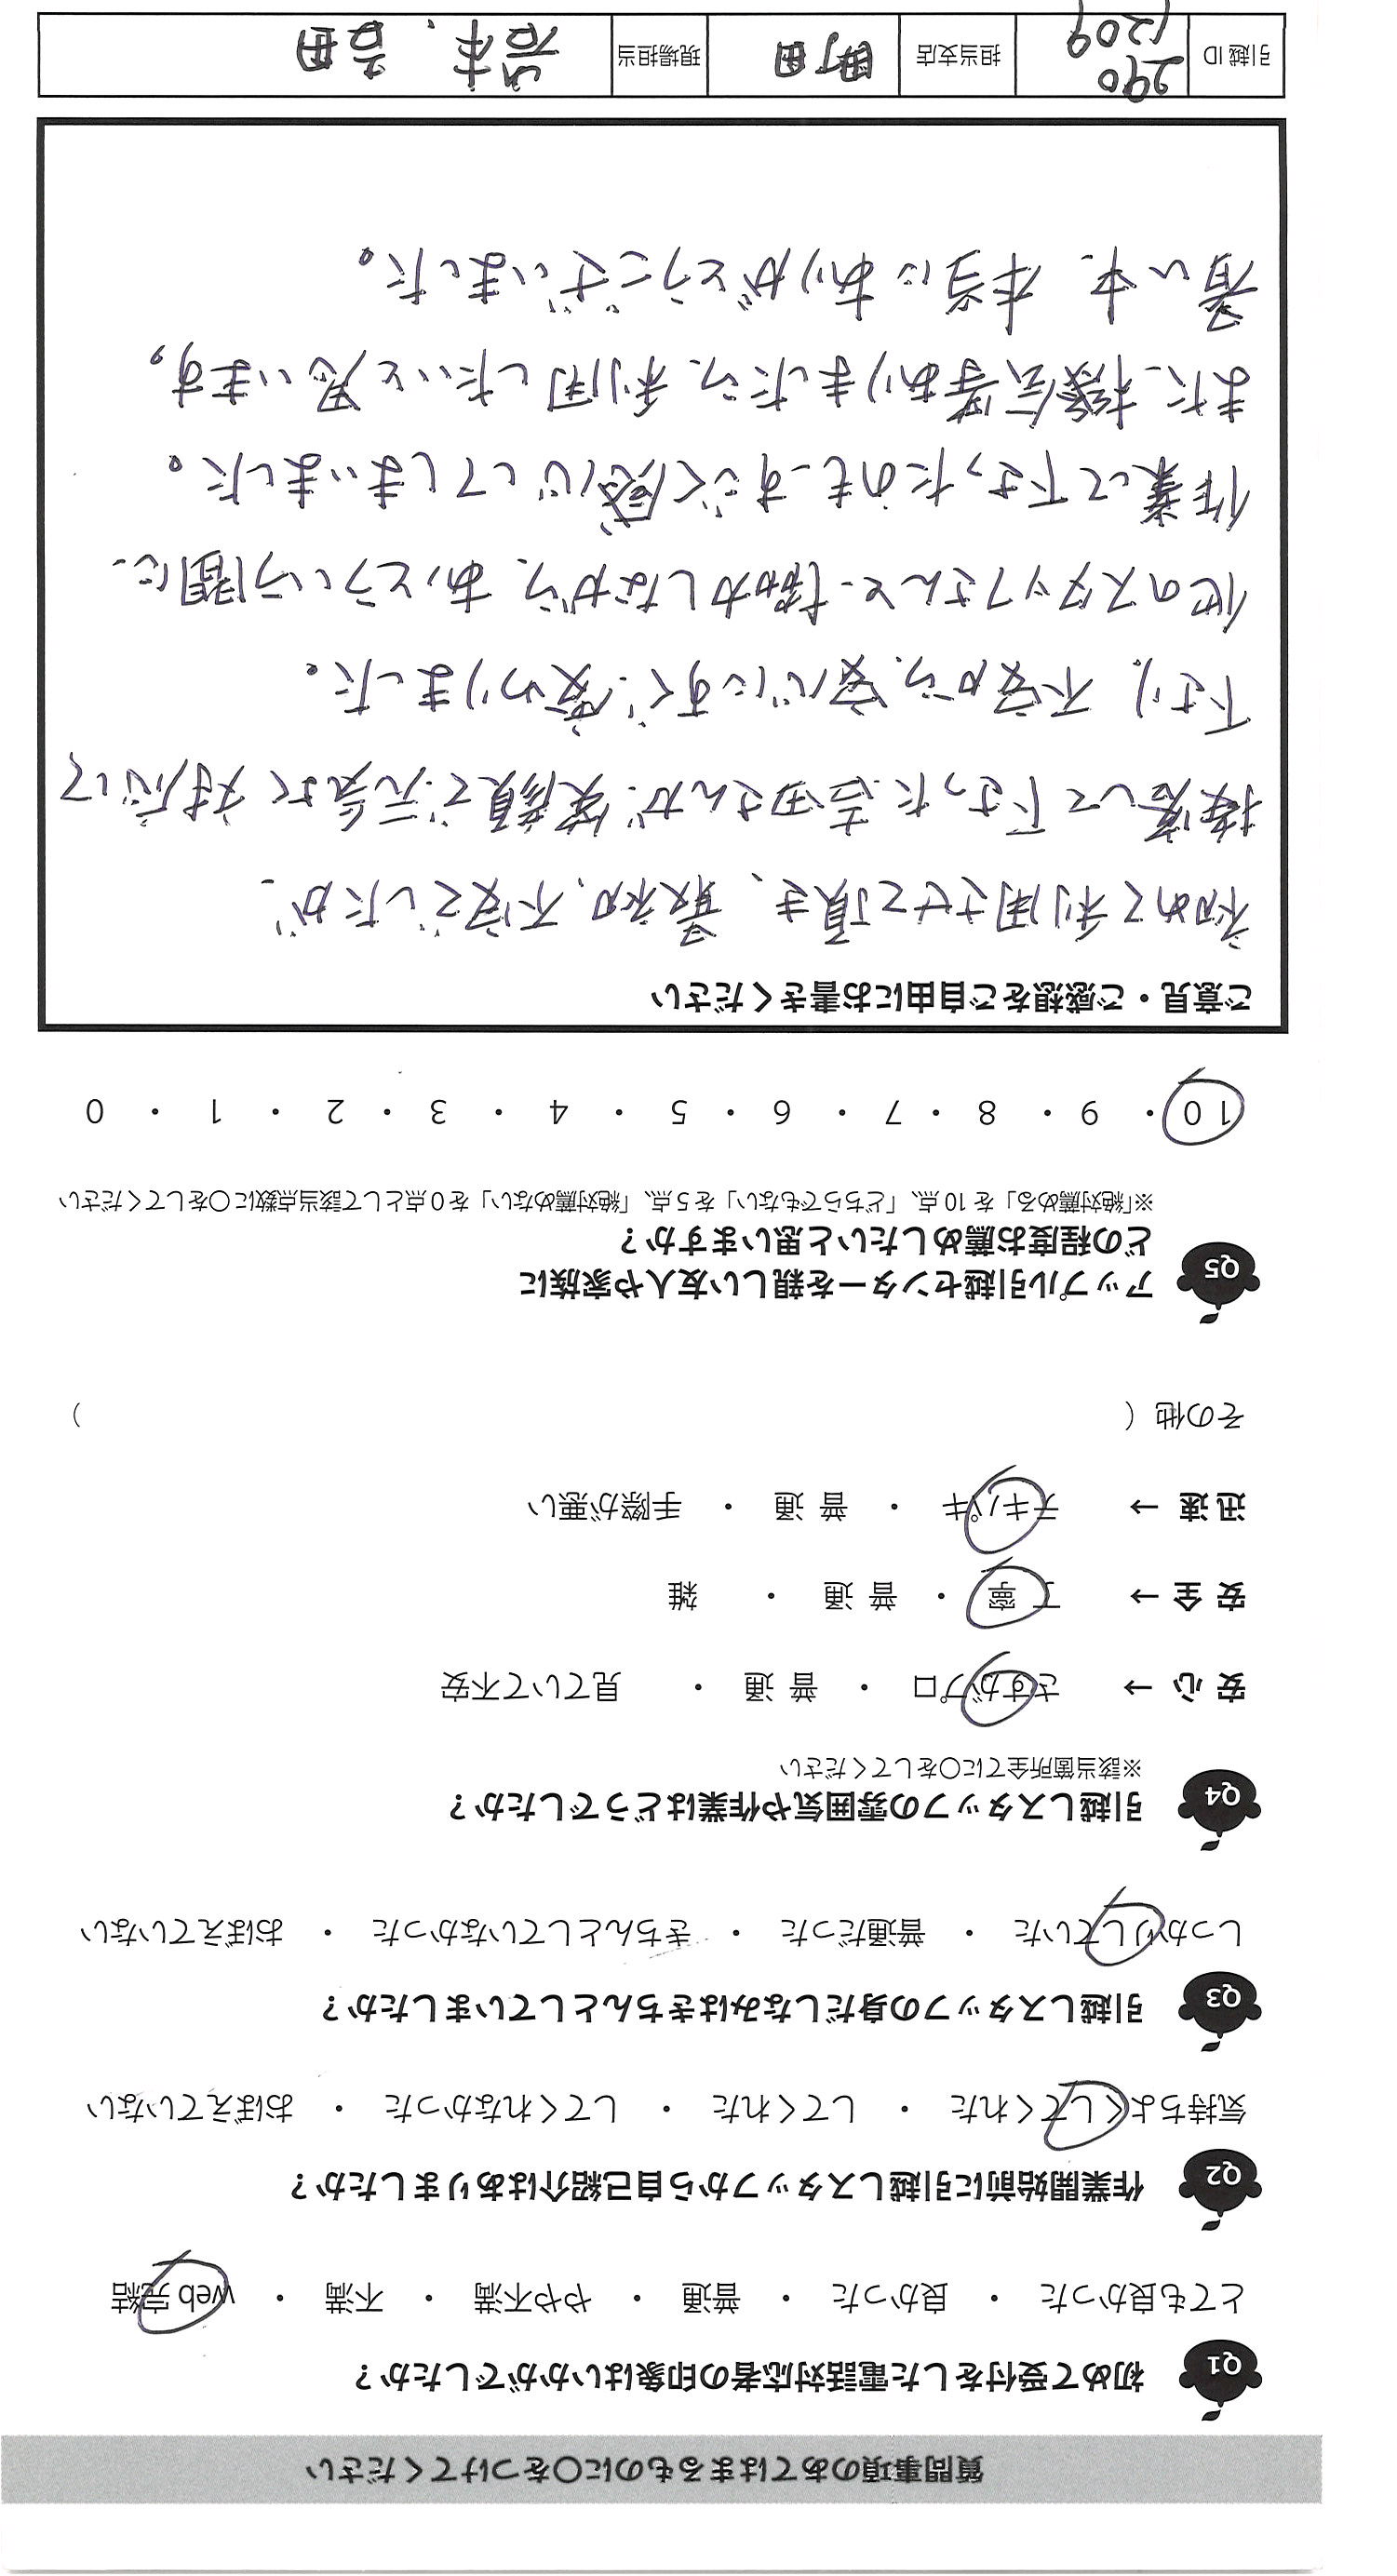 質問事項のあてはまるものに〇をつけてください
Q1 初めて受付をした電話対応者の印象はいかがでしたか？
とても良かった ・ 良かった ・ 普通 ・ やや不満 ・ 不満 ・ web 完結
Q2 作業開始前に引越しスタッフから自己紹介はありましたか？
気持ちよくしてくれた ・ してくれた ・ してくれなかった ・ おぼえていない
Q3 引越しスタッフの身だしなみはきちんとしていましたか？
しっかりしていた ・ 普通だった ・ きちんとしていなかった ・ おぼえていない
Q4 引越しスタッフの雰囲気や作業はどうでしたか？
※該当箇所全てに〇をしてください
安 心 → さすがプロ ・ 普 通 ・ 見ていて不安
安 全 → 丁 寧 ・ 普 通 ・ 雑
迅 速 → テキパキ ・ 普 通 ・ 手際が悪い
その他（ ）
Q5 アップル引越センターを親しい友人や家族に
どの程度お薦めしたいと思いますか？
※「絶対薦める」を 10 点、「どちらでもない」を 5 点、「絶対薦めない」を 0 点として該当点数に〇をしてください
10 ・ 9 ・ 8 ・ 7 ・ 6 ・ 5 ・ 4 ・ 3 ・ 2 ・ 1 ・ 0
ご意見・ご感想をご自由にお書きください
初めて利用させて頂き、最初、不安でしたが、
挨拶して下さった吉田さんが、笑顔で元気よく対応して
下さり、不安から、安心にすぐ変わりました。
他のスタッフさんと、協力しながら、あっという間に、
作業して下さったのも、すごく感心してしまいました。
また、機会等ありましたら、利用したいと思います。
暑い中、本当にありがとうございました。
引越 ID 290
1209 担当支店 町田 現場担当 岩本、吉田